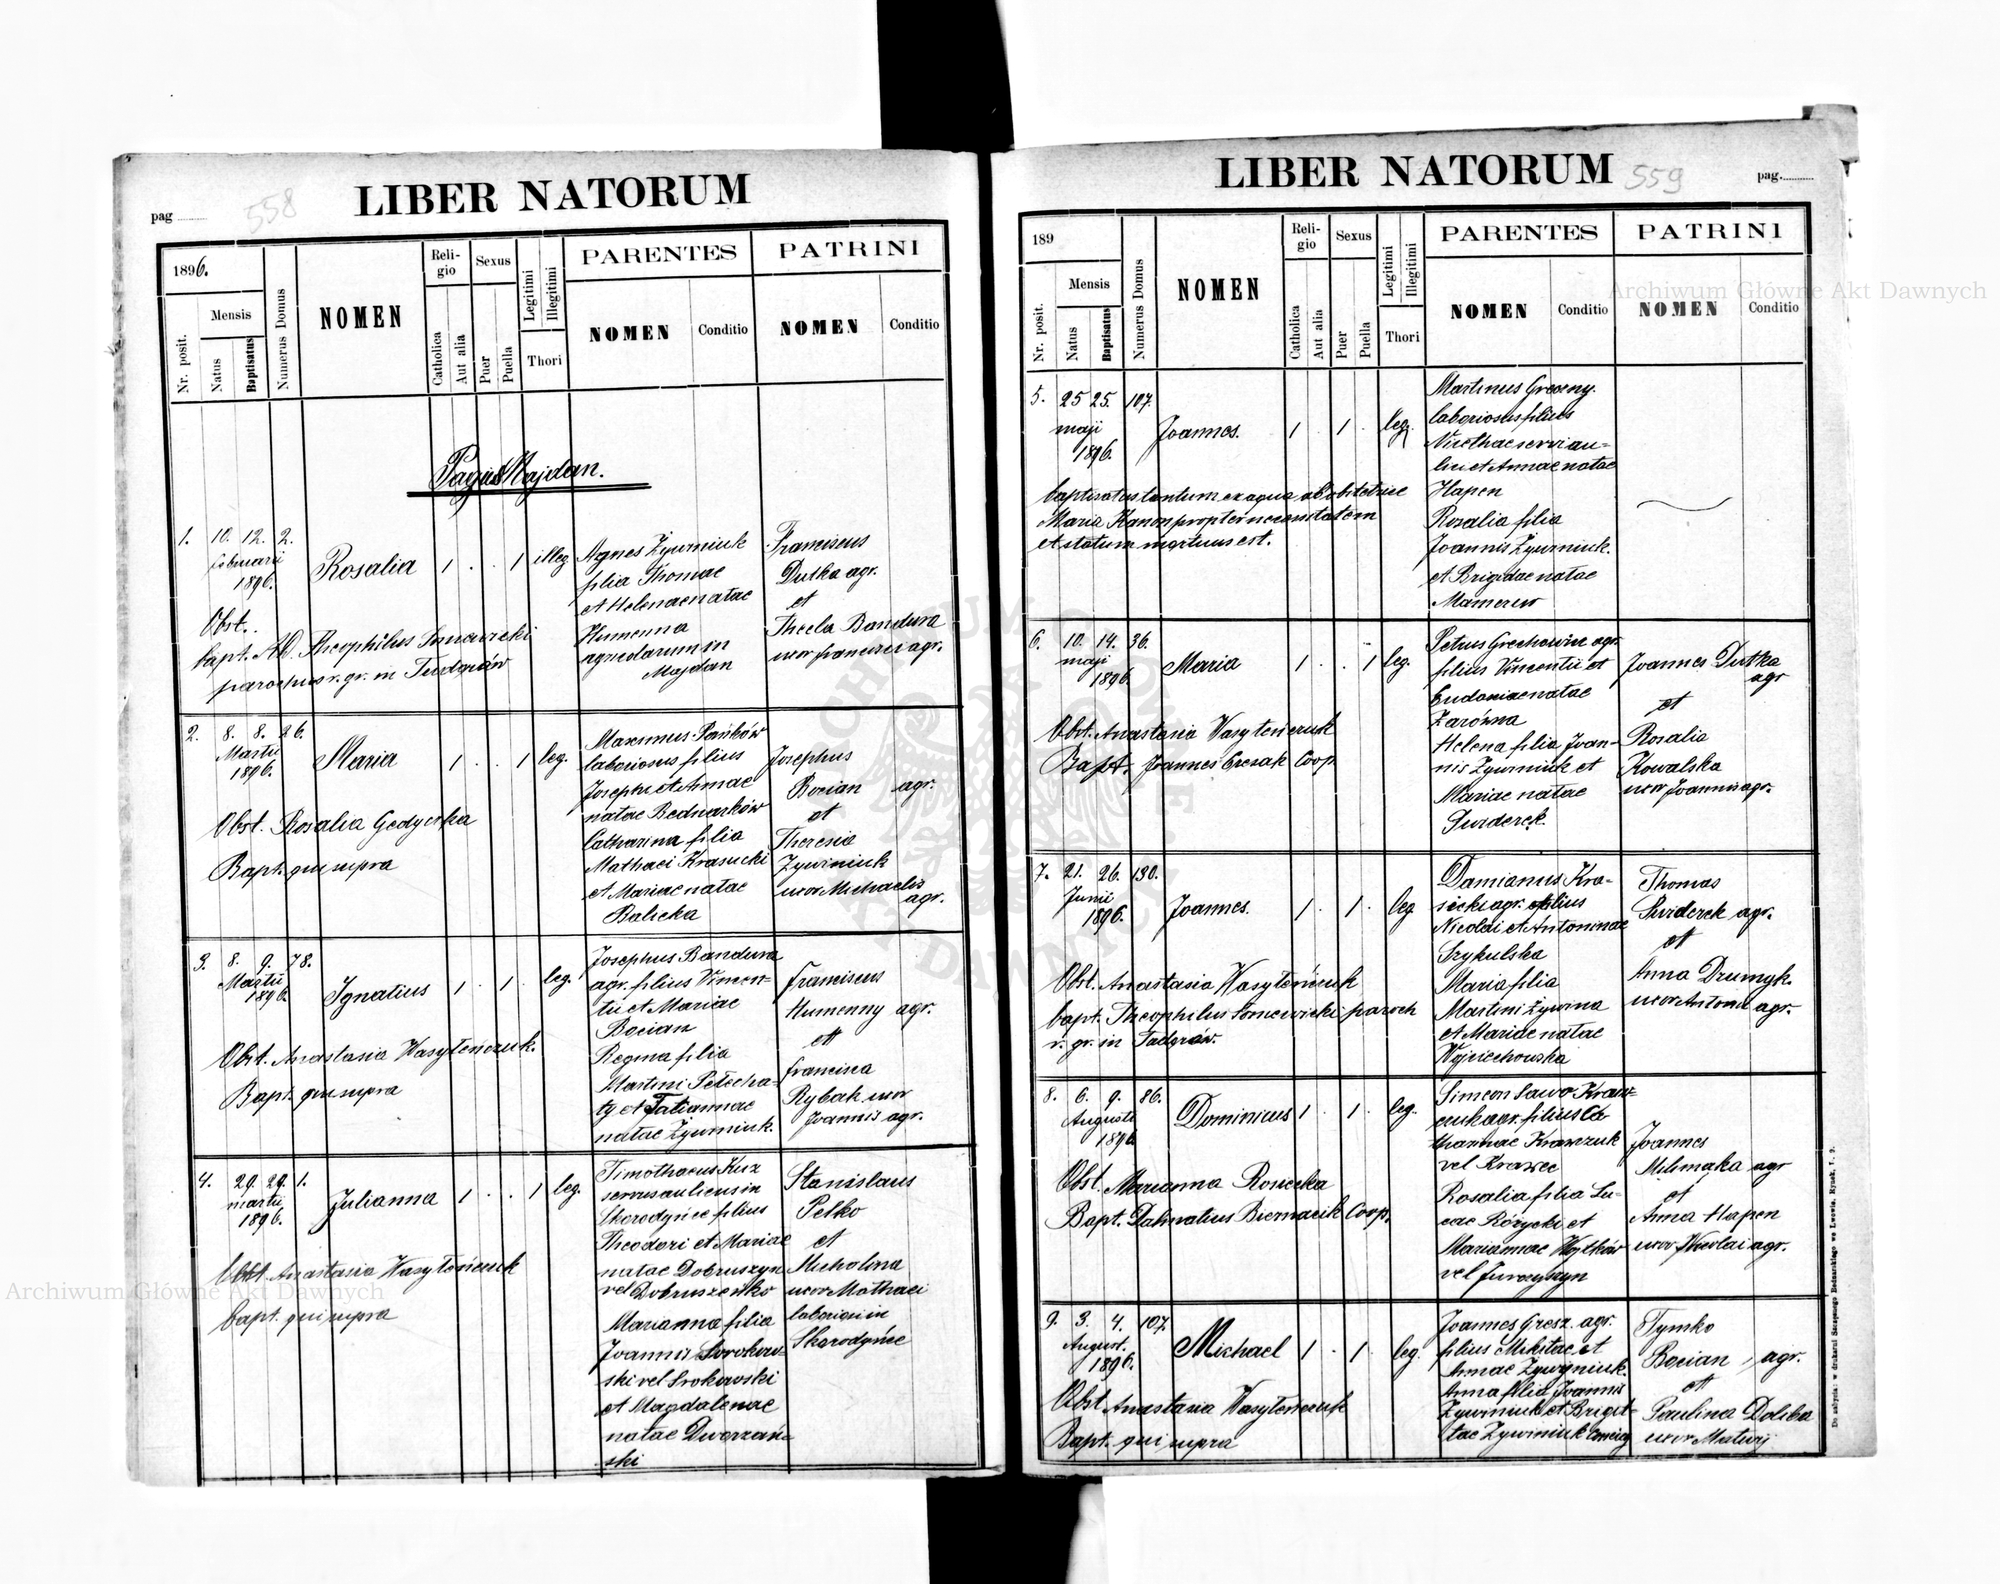 LIBER NATORUM
pag
558
1896.
Nr. posit.
Mensis
Natus
Baptisatus
Numerus Domus
NOMEN
Religio
Catholica
Aut alia
Sexus
Puer
Puella
Legitimi
Illegitimi
Thori
PARENTES
NOMEN
Conditio
PATRINI
NOMEN
Conditio
Pagus Majdan.
1. 10. 12. 2.
februarii
1896.
Rosalia 1 . . 1 illeg.
Agnes Żywiniuk
filia Thomae
et Helenae natae
Humenna
agricolarum in
Majdan
Franciscus
Dutka agr.
et
Thecla Bandura
uxor francisci agr.
Obst.
bapt. AD. Theophilus
parochus r. gr. in Tudorów
2. 8. 8. 26.
Martii
1896.
Maria 1 . . 1 leg.
Maximus Pańków
laboriosus filius
Josephi et Annae
natae Bednarków
Catharina filia
Mathaei Krasucki
et Mariae natae
Balicka
Josephus
Bocian agr.
et
Theresia
Żywiniuk
uxor Michaelis
agr.
Obst. Rosalia Gedycka
Bapt. qui supra
3. 8. 9. 78.
Martii
1896.
Ignatius 1 . 1 . leg.
Josephus Bandura
agr. filius Vincen-
tii et Mariae
Bocian
Regina filia
Martini Petecha-
ty et Tatiannae
natae Żywiniuk.
Franciscus
Humenny agr.
et
francisca
Rybak uxor
Joannis agr.
Obst. Anastasia Wasyteńczuk.
Bapt. qui supra
4. 29. 29. 1.
martii
1896.
Julianna 1 . . 1 leg.
Timothaeus Kuz
servus aulicus in
Skorodyńce filius
Theodori et Mariae
natae Dobruszyn
vel Dobruszenko
Marianna filia
Joannis Sorokow-
ski vel Srokowski
et Magdalenae
natae Dworzań-
ski
Stanislaus
Petko
et
Michalina
uxor Mathaei
laboriosi in
Skorodyńce
Obst. Anastasia Wasyteńczuk
bapt. qui supra
LIBER NATORUM
559
pag.
189
Nr. posit.
Mensis
Natus
Baptisatus
Numerus Domus
NOMEN
Religio
Catholica
Aut alia
Sexus
Puer
Puella
Legitimi
Illegitimi
Thori
PARENTES
NOMEN
Conditio
PATRINI
NOMEN
Conditio
5. 25 25. 107.
maji
1896.
Joannes. 1 . 1 . leg.
Martinus Greczny.
laboriosus filius
Nicethae servi au-
lici et Annae natae
Hapen
Rosalia filia
Joannis Żywiniuk.
et Brigidae natae
baptisatus tantum ex aqua ab obstetrice
Maria Kanon propter necessitatem
et statum mortuus est.
6. 10. 14. 36.
maji
1896.
Maria 1 . . 1 leg.
Petrus Grechowicz agr.
filius Vincentii et
Eudoxiae natae
Żarówna
Helena filia Joan-
nis Żywiniuk et
Mariae natae
Swiderek.
Joannes Dutka
agr
et
Rosalia
Kowalska
uxor Joannis agr.
Obst. Anastasia Wasyteńczuk
Bapt. Joannes Coop.
7. 21. 26. 130.
Junii
1896.
Joannes. 1 . 1 . leg
Damianus Kra-
sicki agr. filius
Nicolai et Antoninae
Szykulska
Maria filia
Martini Żywina
et Mariae natae
Wojciechowska
Thomas
Swiderek agr.
et
Anna Drumyk.
uxor Antonii agr.
Obst. Anastasia Wasyteńczuk
bapt. Theophilus paroch
r. gr. in Tudorów.
8. 6. 9. 86.
Augusti
1896
Dominicus 1 . 1 . leg.
Simeon Sawo Kraw-
czuk agr. filius Ca-
tharinae Krawczuk
vel Krawec
Rosalia filia Lu-
cae Różycki et
Mariannae Wojtków
vel Juraszyn
Joannes
Mlimaka agr
et
Anna Hapen
uxor Nicolai agr.
Obst. Marianna Rosiecka
Bapt. Dalmatius Biernacik Coop.
9. 3. 4. 107.
August.
1896.
Michael 1 . 1 . leg.
Joannes Gresz. agr.
filius Mikitae et
Annae Żywyniuk.
Anna filia Joannis
Żywiniuk et Brigit-
tae Żywiniuk
Tymko
Bocian, agr.
et
Paulina Doliba
uxor Matwij
Obst Anastasia Wasyteńczuk
Bapt. qui supra
Do nabycia: w drukarni Szczęsnego Bednarskiego we Lwowie, Rynek, l. 9.
Archiwum Główne Akt Dawnych
Archiwum Główne Akt Dawnych